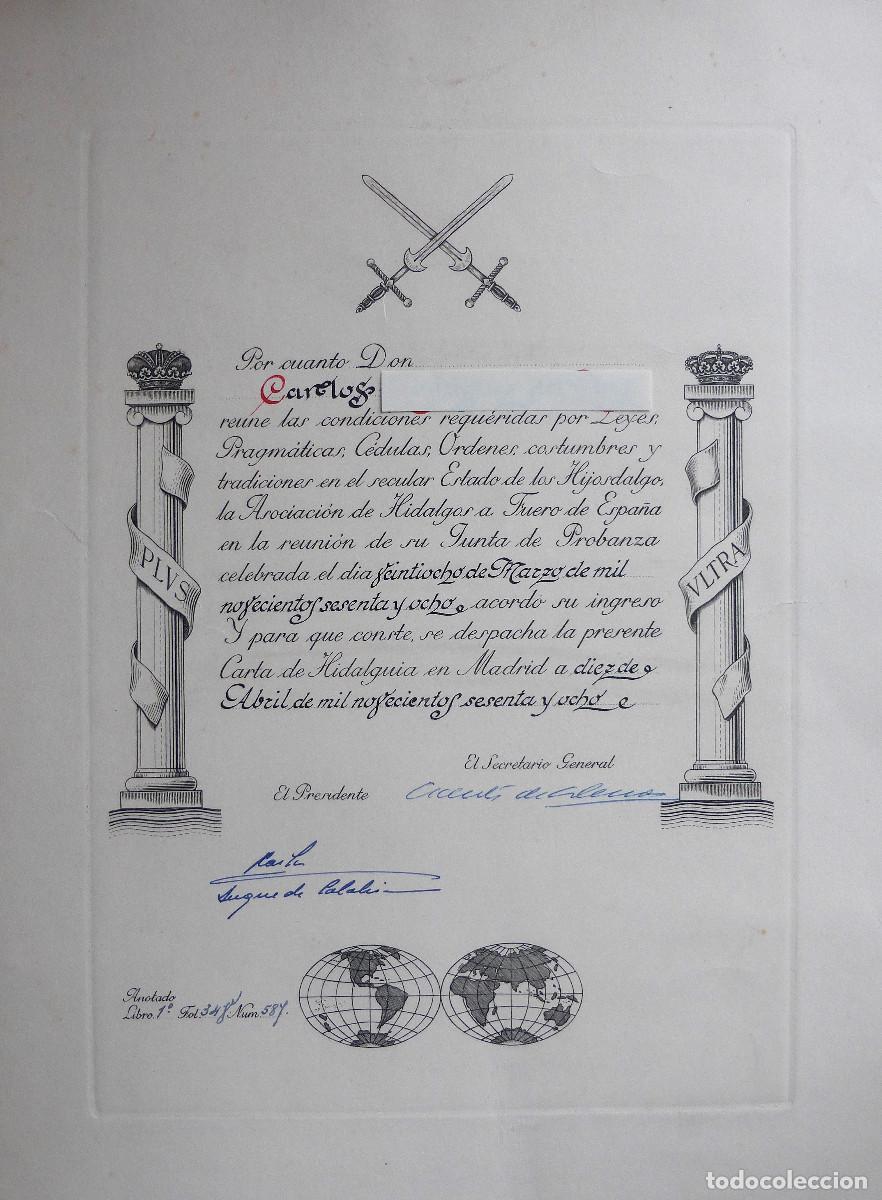 Por cuanto Don
Carlos
reune las condiciones requéridas por Leyes,
Pragmáticas, Cédulas, Ordenes, costumbres y
tradiciones en el secular Estado de los Hijosdalgo,
la Asociación de Hidalgos a Fuero de España
en la reunión de su Junta de Probanza
celebrada el dia veintiocho de Marzo de mil
novecientos sesenta y ocho acordó su ingreso
Y para que conste, se despacha la presente
Carta de Hidalguia en Madrid a diez de
Abril de mil novecientos sesenta y ocho
PLVS
VLTRA
El Secretario General
El Presidente
Duque de Calabria
Anotado
Libro 1º Fol. 348 Num. 587.
todocoleccion